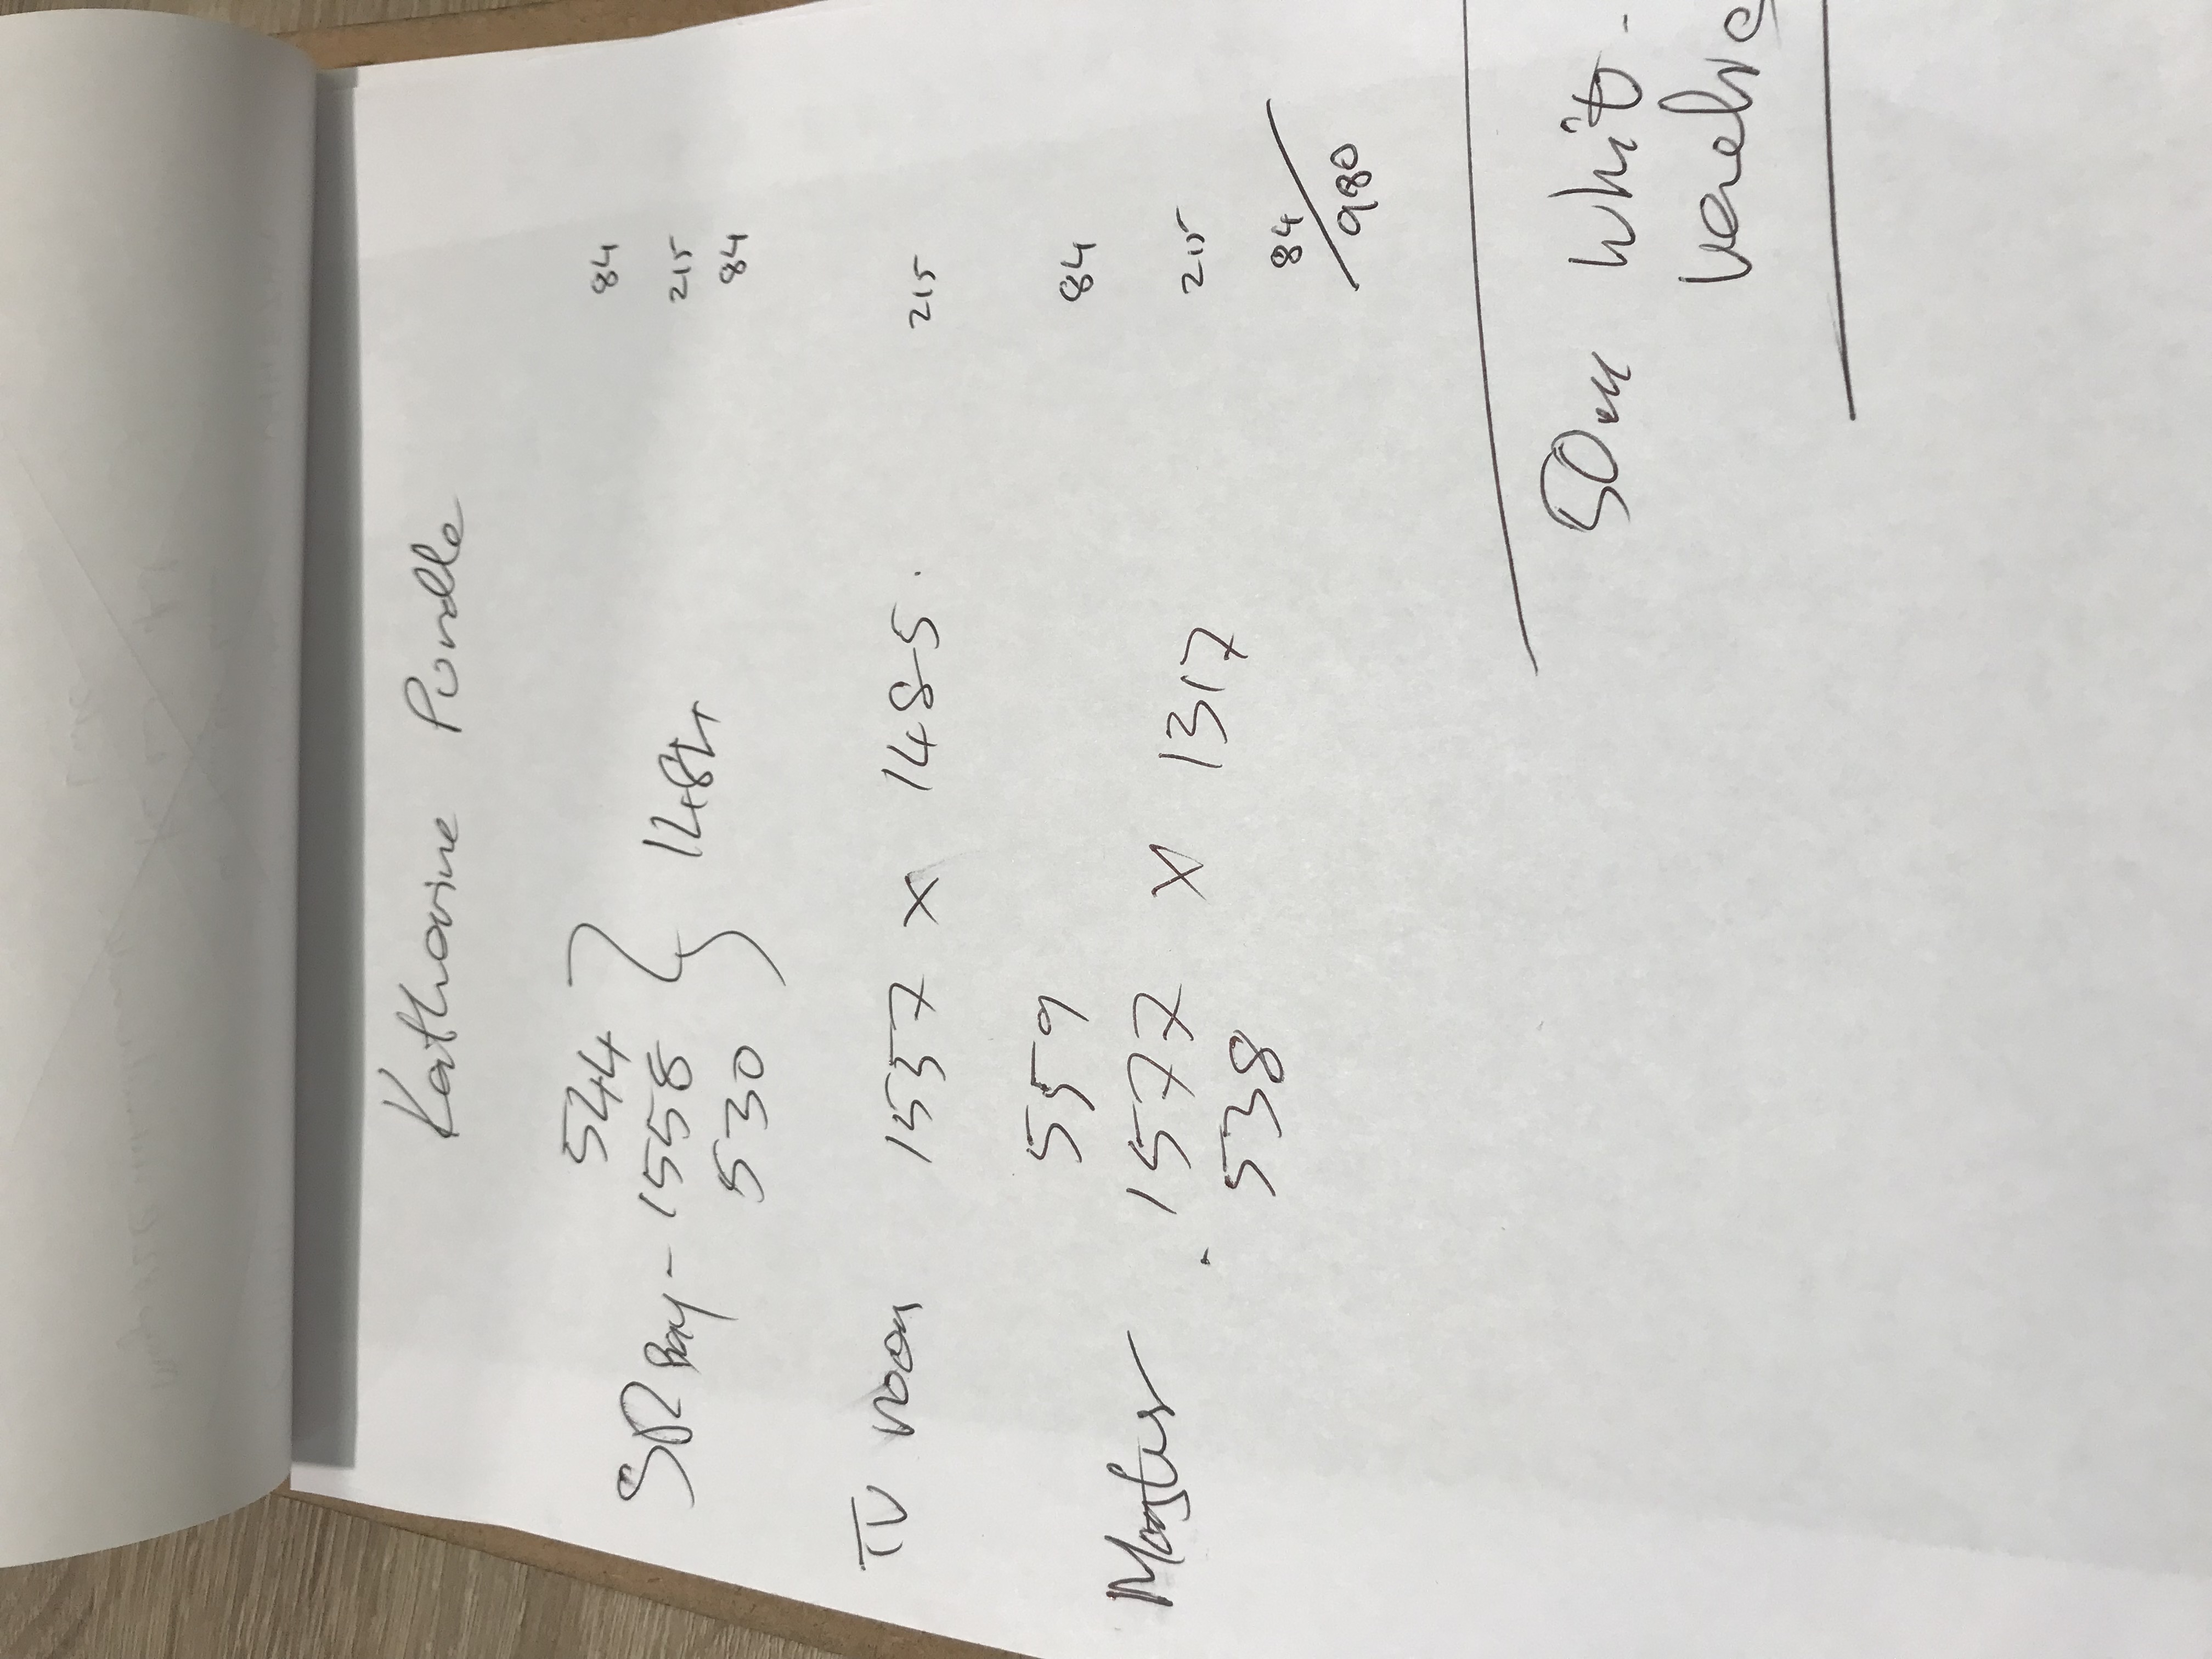 Katharine Purdle
544 84
Bay - 1558 } 1484 215
530 84
TV room 1537 x 1485. 215
559 84
Master . 1577 x 1317 215
538 84
980
50m White -